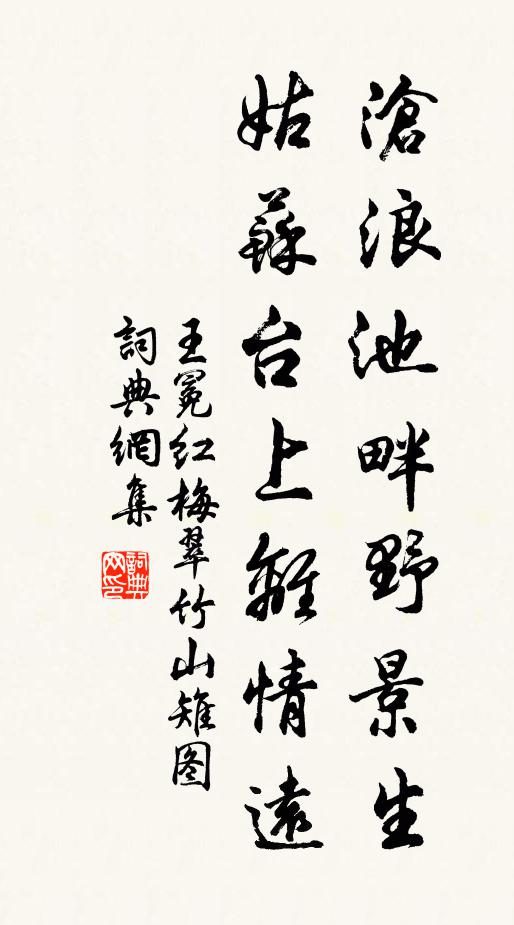 滄浪池畔野景生
姑蘇台上離情遠
王冕红梅翠竹山雉图
詞典網集
詞典網印